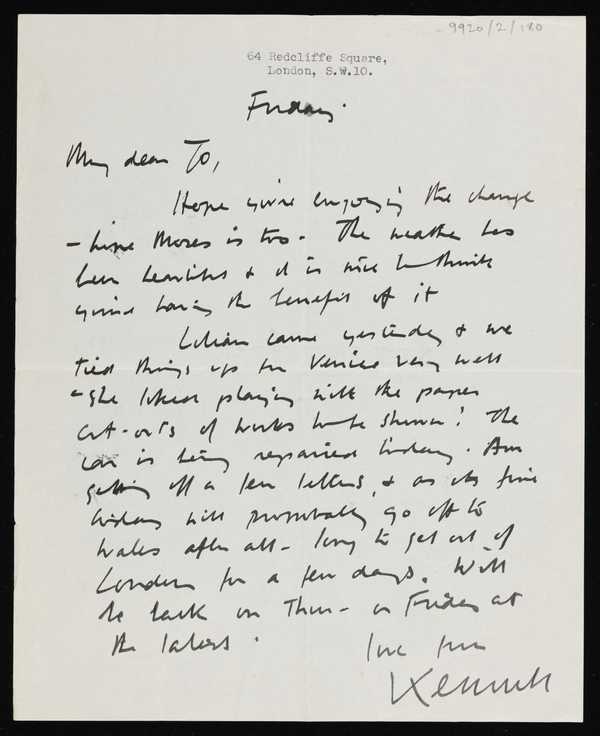 9920/2/180
64 Redcliffe Square,
London, S.W.10.
Friday.
My dear Jo,
Hope you're enjoying the change
- hope Moses is too - The weather has
been beautiful & it is nice to think
you're having the benefit of it
Lilian came yesterday & we
tied things up for Venice very well
- she liked playing with the paper
cut-outs of works to be shown! The
car is being repaired today. Am
getting off a few letters, & as its fine
today will probably go off to
Wales after all - long to get out of
London for a few days. Will
be back on Thur - or Friday at
the latest.
love from
Kenneth